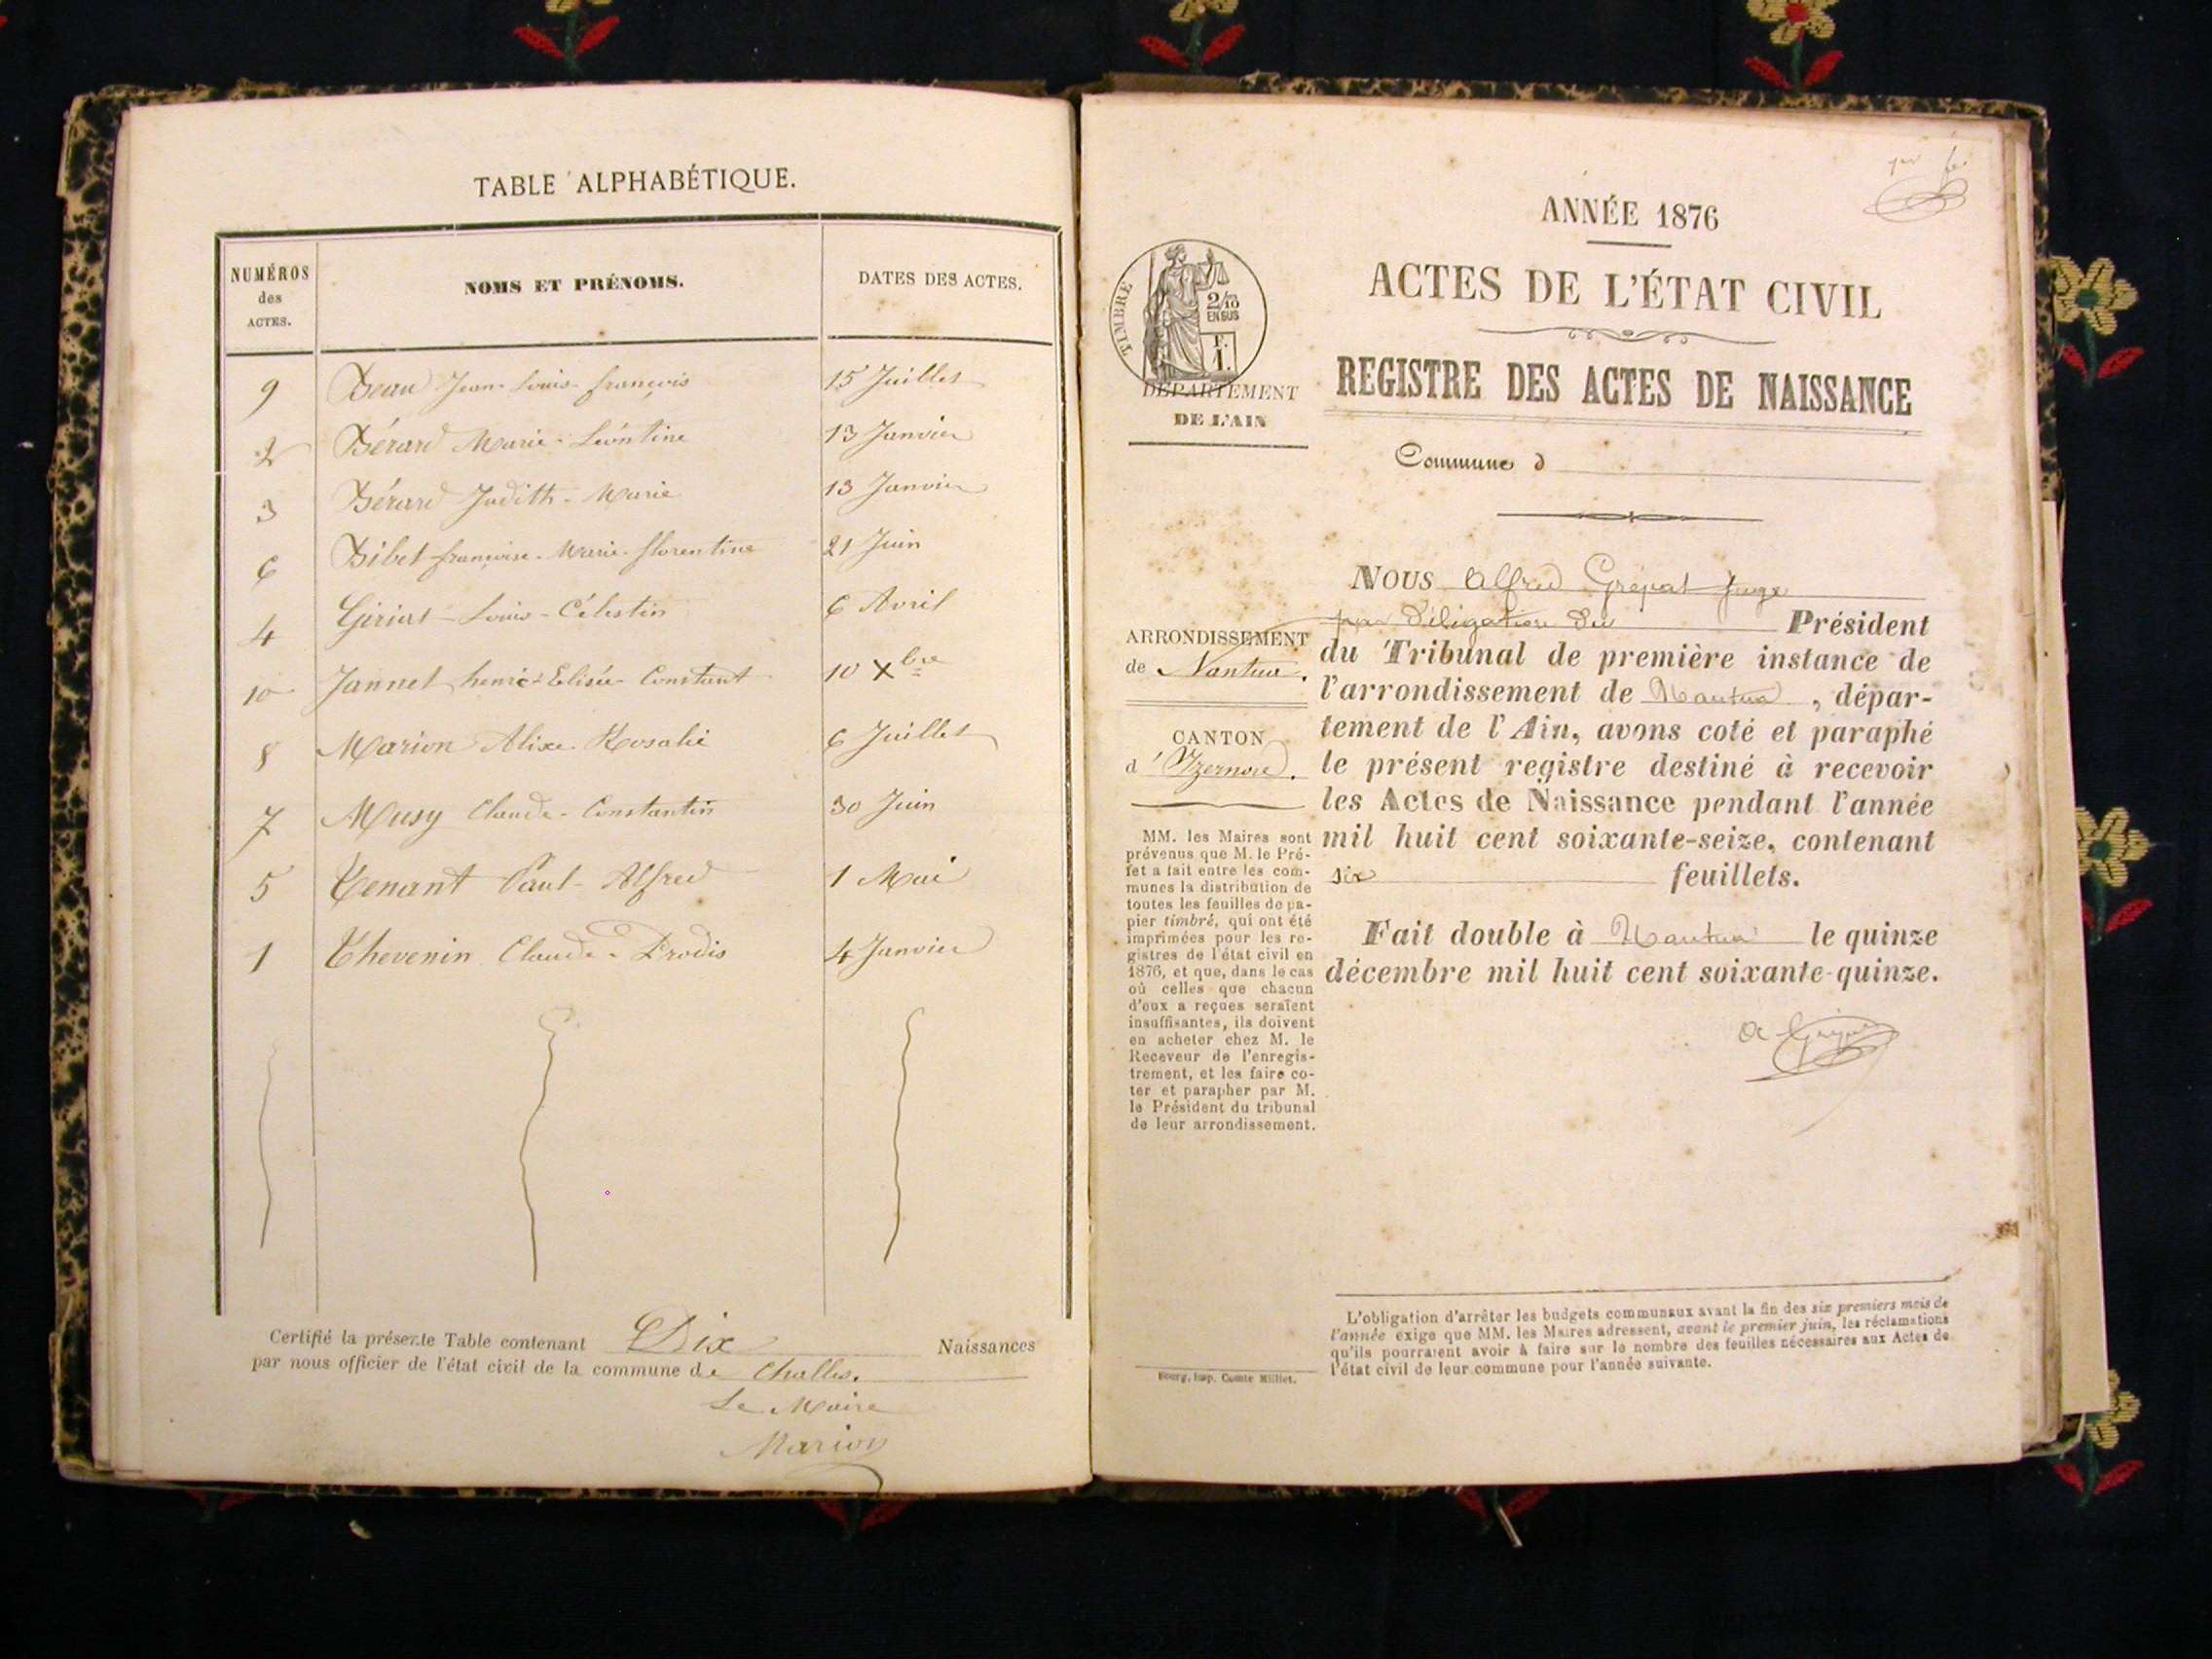 TABLE ALPHABÉTIQUE.
NUMÉROS
des
ACTES.
NOMS ET PRÉNOMS.
DATES DES ACTES.
9 Beau Jean-Louis-françois 15 Juillet
2 Bérard Marie-Léontine 13 Janvier
3 Bérard Judith-Marie 13 Janvier
6 Bibet françoise-Marie-florentine 21 Juin
4 Giriat-Louis-Célestin 6 Avril
10 Jannet henri-Elisée-Constant 10 Xbre
8 Marion Alix-Rosalie 6 Juillet
7 Musy Claude-Constantin 30 Juin
5 Tenant Paul-Alfred 1 Mai
1 Thevenin Claude-Prodis 4 Janvier
Certifié la présente Table contenant Dix Naissances
par nous officier de l'état civil de la commune de Challes.
Le Maire
Marion
ANNÉE 1876
ACTES DE L'ÉTAT CIVIL
REGISTRE DES ACTES DE NAISSANCE
TIMBRE
2/10
EN SUS
F.
1.
DÉPARTEMENT
DE L'AIN
Commune d
ARRONDISSEMENT
de Nantua.
CANTON
d'Izernore.
MM. les Maires sont
prévenus que M. le Pré-
fet a fait entre les com-
munes la distribution de
toutes les feuilles de pa-
pier timbré, qui ont été
imprimées pour les re-
gistres de l'état civil en
1876, et que, dans le cas
où celles que chacun
d'eux a reçues seraient
insuffisantes, ils doivent
en acheter chez M. le
Receveur de l'enregis-
trement, et les faire co-
ter et parapher par M.
le Président du tribunal
de leur arrondissement.
NOUS Alfred Grépat Juge
par délégation du Président
du Tribunal de première instance de
l'arrondissement de Nantua, dépar-
tement de l'Ain, avons coté et paraphé
le présent registre destiné à recevoir
les Actes de Naissance pendant l'année
mil huit cent soixante-seize, contenant
six feuillets.
Fait double à Nantua le quinze
décembre mil huit cent soixante-quinze.
L'obligation d'arrêter les budgets communaux avant la fin des six premiers mois de
l'année exige que MM. les Maires adressent, avant le premier juin, les réclamations
qu'ils pourraient avoir à faire sur le nombre des feuilles nécessaires aux Actes de
l'état civil de leur commune pour l'année suivante.
Bourg, imp. Comte Milliet.